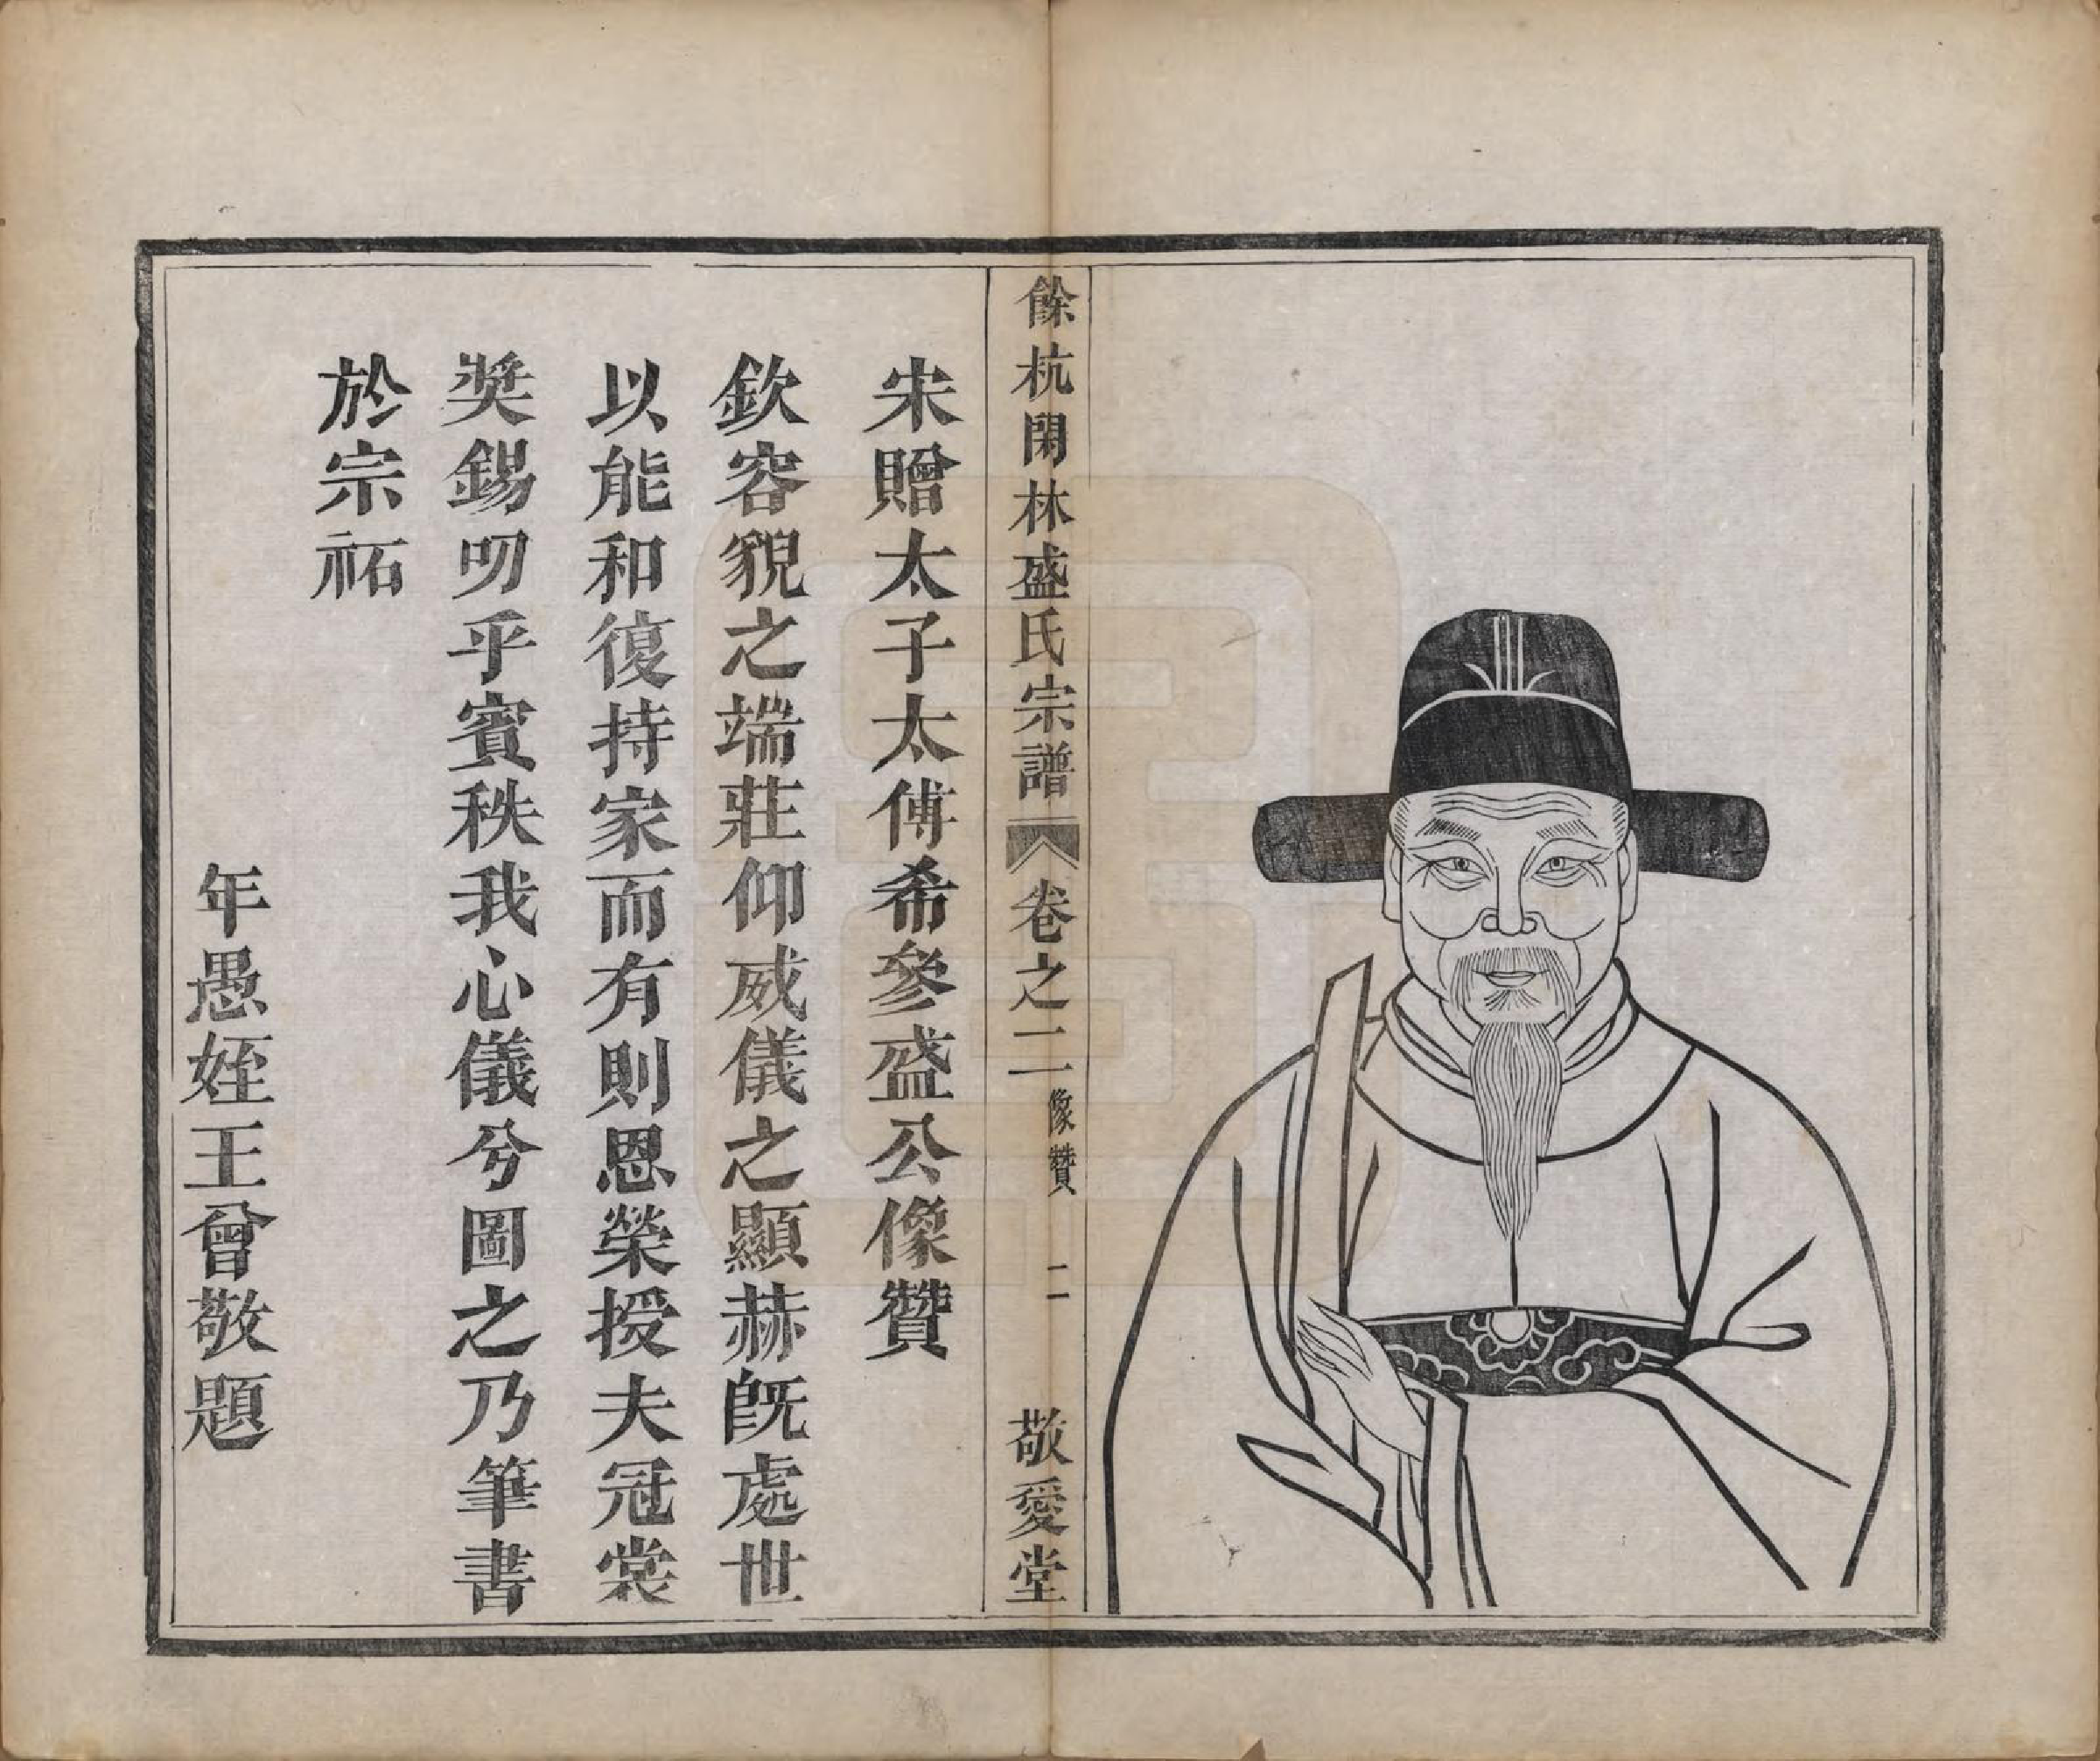 餘杭閑林盛氏宗譜 卷之二 像贊 二 敬愛堂
宋贈太子太傅希參盛公像贊
欽容貌之端莊仰威儀之顯赫旣處世
以能和復持家而有則恩榮授夫冠裳
奬錫叨乎賓秩我心儀兮圖之乃筆書
於宗祏
年愚姪王曾敬題